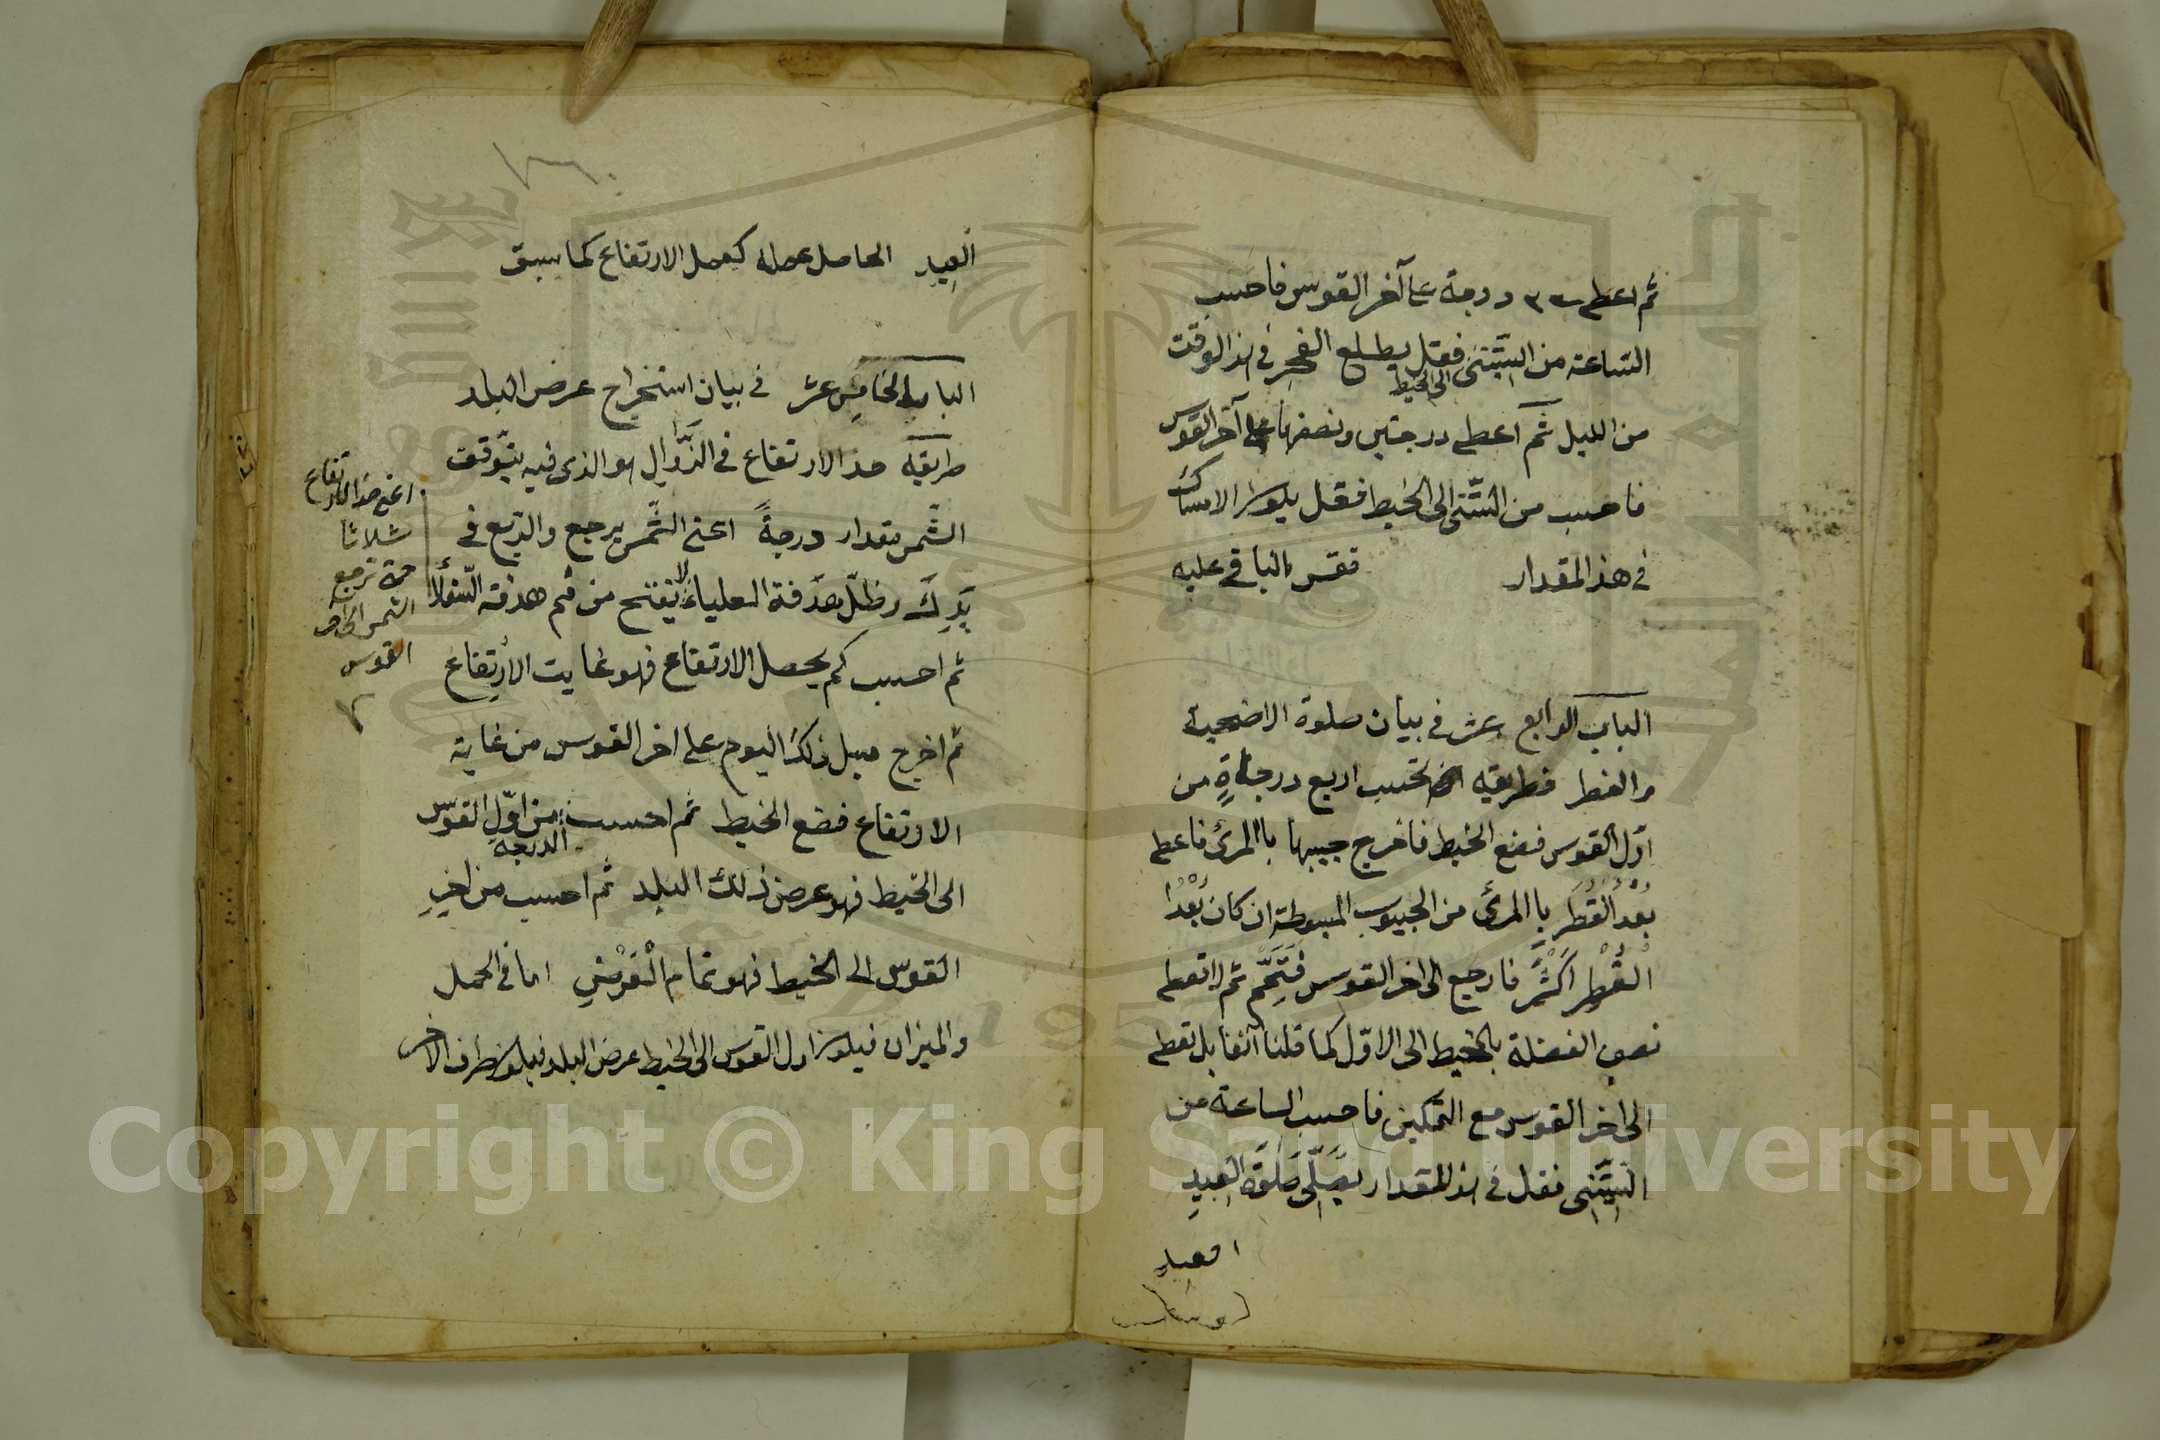 ثم اعط درجة على آخر القوس فاحسب
الساعة من السِّتّنى فقل يطلع الفجر فى هذ الوقت
الى الخيط
من الليل ثم اعط درجتين ونصفها على آخر القوس
فاحسب من السّتّنى الى الخيط فقل يكون الامساك
فى هذ المقدار فقس الباقى عليه
الباب الرابع عشر فى بيان صلوة الاضحية
والفطر فطريقه تحسب اربع درجاةٍ من
اوّل القوس فضع الخيط فاخرج جيبها باالمرئ فاعط
بُعْدُ الْقُطْرِ باالمرئ من الجيوب المبسوطة ان كان بُعْدُ
الْقُطْرِ اَكْثَرَ فارجع الى اخر القوس ثم لا تعط
نصف الفضلة بالخيط الى الاوّل كما قلنا آنفا بل تعط
الى اخر القوس مع التمكين فاحسب الساعة من
السِّتَّنِى فقل فى هذ المقدار يُصَلّى صَلوَةِ الْعِيدِ
العيد
الْعِيدِ الحاصل عمله كعمل الارتفاع كما سبق
الباب الخامس عشر فى بيان استخراج عرض البلد
طريقه خذ الارتفاع فى الزَّوَالِ هو الذى فيه يتوقّف
الشّمس مقدار درجةً اعنى الشّمس يرجع والرّبع فى
يَدِكَ وظلّ هدفة العلياء لا يفتح من فم هدفة السّفلا
ثم احسب كم يحصل الارتفاع فهو غايت الارتفاع
ثم اخرج ميل ذلك اليوم على اخر القوس من غاية
الارتفاع فضع الخيط ثم احسب من اوّلِ القوس
الدرجة
الى الخيط فهو عرض ذلك البلد ثم احسب من اخرِ
القوس الى الخيط فهو تمام الْعَرْضِ اما فى الحمل
والميزان فيكون اول القوس الى الخيط عرض البلد فيكون طرف الاخر
اعنى خذ الارتفاع
ثلاثا
حتى ترجع
الشمس الى اخر
القوس
Copyright © King Saud University
1957